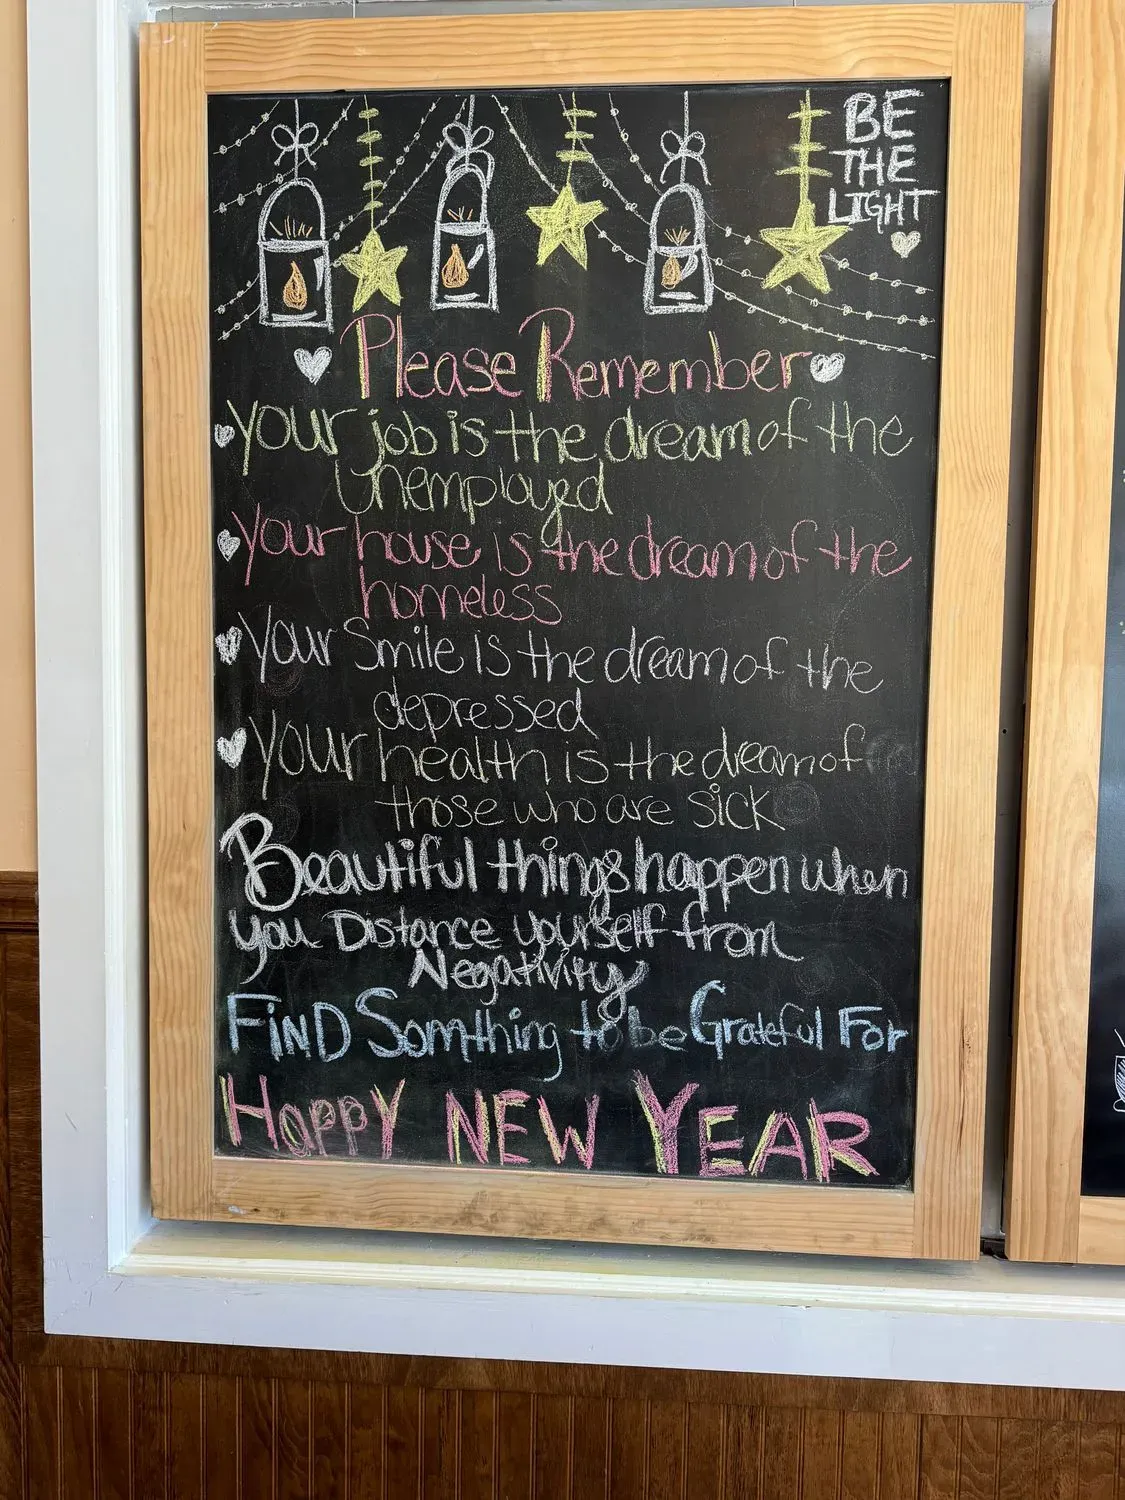 BE
THE
LIGHT
Please Remember
your job is the dream of the
Unemployed
your house is the dream of the
homeless
your Smile is the dream of the
depressed
your health is the dream of
those who are sick
Beautiful things happen when
you Distance yourself from
Negativity
FiND Somthing to be Grateful For
HAPPY NEW YEAR